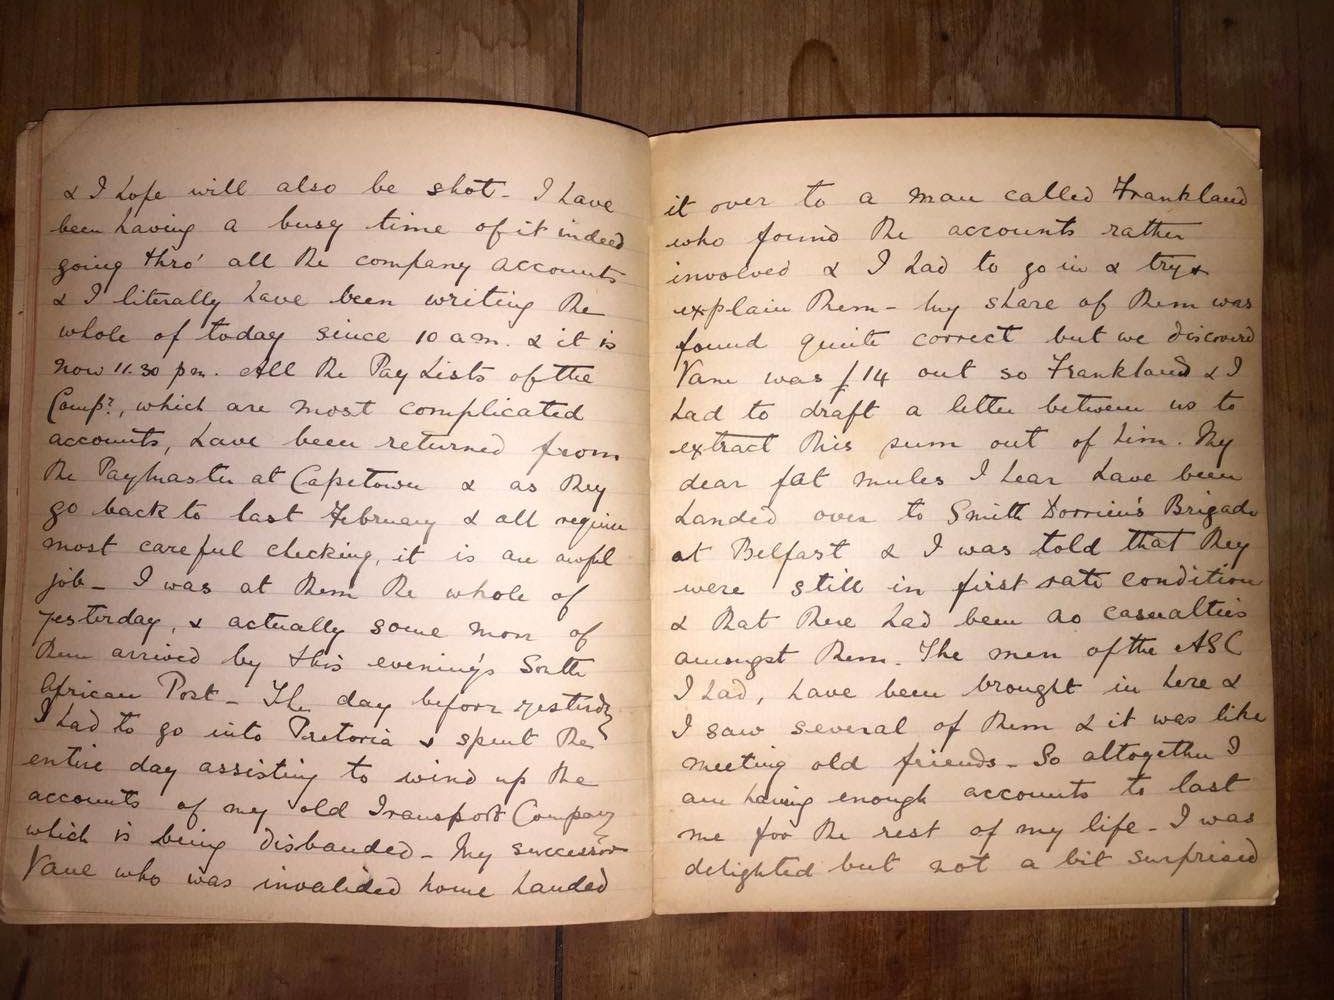 & I hope will also be shot - I have
been having a busy time of it indeed
going thro' all the company accounts
& I literally have been writing the
whole of today since 10 a.m. & it is
now 11.30 pm. All the Pay Lists of the
Compy, which are most complicated
accounts, have been returned from
the Paymaster at Capetown & as they
go back to last February & all require
most careful checking, it is an awful
job - I was at them the whole of
yesterday, & actually some more of
them arrived by this evening's South
African Post - The day before yesterday
I had to go into Pretoria & spent the
entire day assisting to wind up the
accounts of my old Transport Company
which is being disbanded - My successor
Vane who was invalided home handed
it over to a man called Frankland
who found the accounts rather
involved & I had to go in & try &
explain them - My share of them was
found quite correct but we discovered
Vane was £14 out so Frankland & I
had to draft a letter between us to
extract this sum out of him. My
dear fat mules I hear have been
handed over to Smith Dorrien's Brigade
at Belfast & I was told that they
were still in first rate condition
& that there had been no casualties
amongst them. The men of the ASC
I had, have been brought in here &
I saw several of them & it was like
meeting old friends - So altogether I
am having enough accounts to last
me for the rest of my life - I was
delighted but not a bit surprised